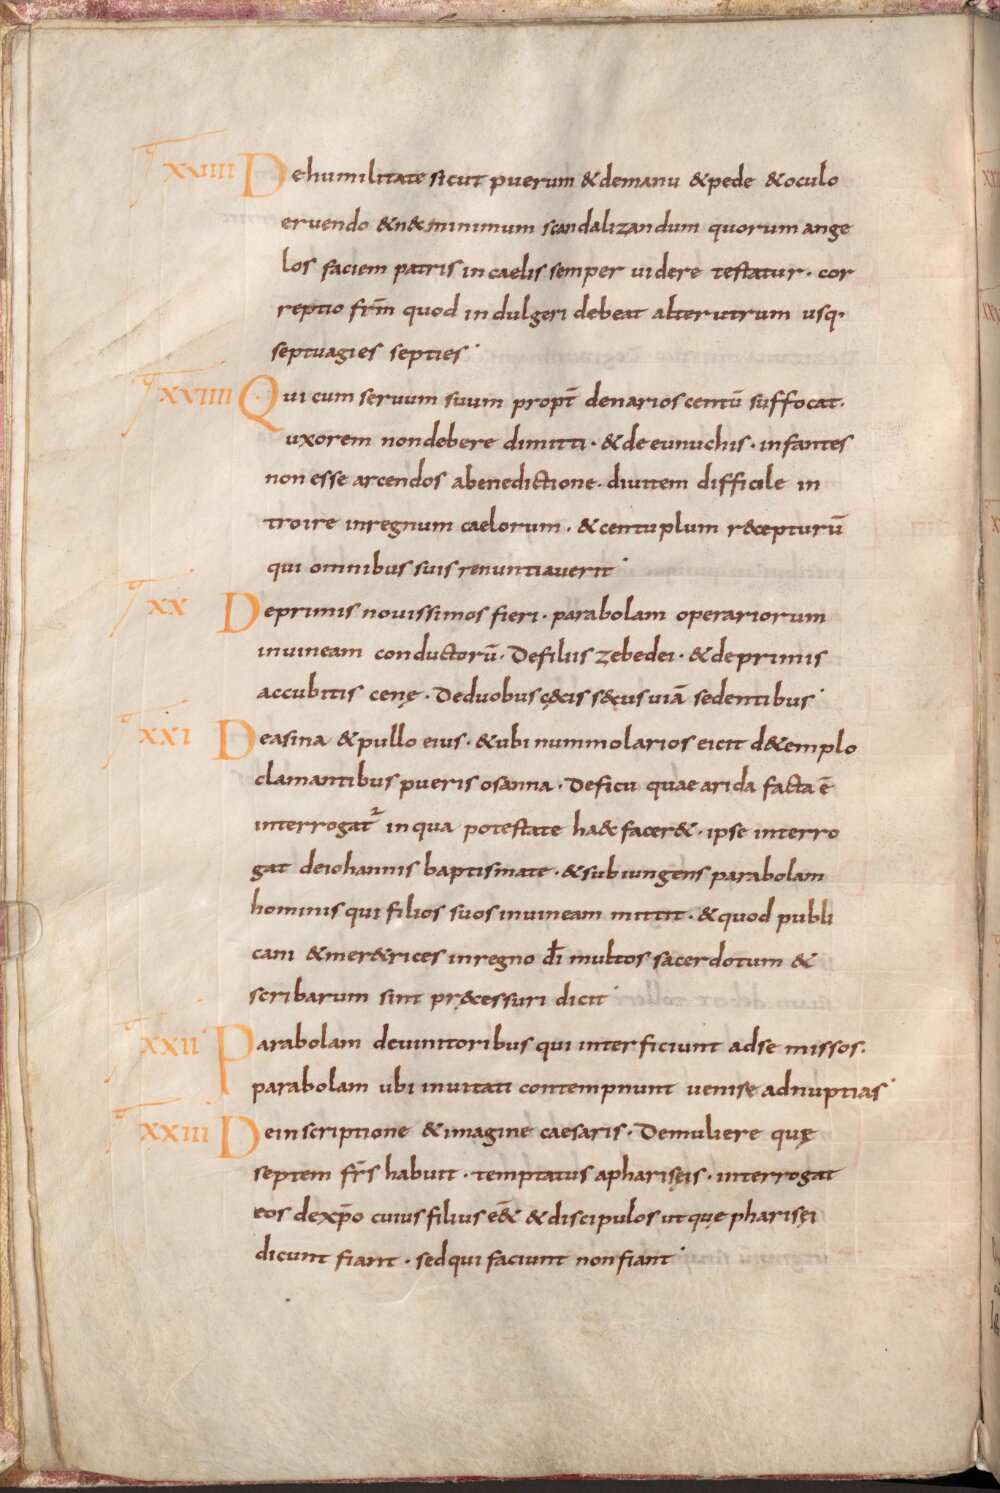 XVIIII Dehumilitate sicut puerum & demanu & pede & oculo
eruendo & n& minimum scandalizandum quorum ange
los faciem patris in caelis semper uidere testatur · cor
reptio frm̄ quod indulgeri debeat alterutrum usq·
septuagies septies
XVIIII Qui cum seruum suum propt̄ denarios centū suffocat·
uxorem nondebere dimitti · & de eunuchis · infantes
non esse arcendos abenedictione · diuitem difficile in
troire inregnum caelorum · & centuplum r&cepturū
qui omnibus suis renuntiauerit
XX Deprimis nouissimos fieri · parabolam operariorum
inuineam conductorū · Defiliis zebedei · & deprimis
accubitis cenę · Deduobus cę&cis s&cus uiā sedentibus
XXI Deasina & pullo eius · & ubi nummolarios eicit d&emplo
clamantibus pueris osanna · Deficu quae arida facta ē
interrogat᷑ inqua potestate ha&c facer& · ipse interro
gat deiohannis baptismate · & subiungens parabolam
hominis qui filios suos inuineam mittit · & quod publi
cani & mer&rices inregno d̄i multos sacerdotum &
scribarum sint prę&cessuri dicit
XXII Parabolam deuinitoribus qui interficiunt adse missos·
parabolam ubi inuitati contempnunt uenise adnuptias
XXIII Deinscriptione & imagine caesaris · Demuliere quę
septem fr̄s habuit · temptatus apharisęis · interrogat
eos dexp̄o cuius filius e& & discipulos ut quę pharisęi
dicunt fiant · sedqui faciunt non fiant